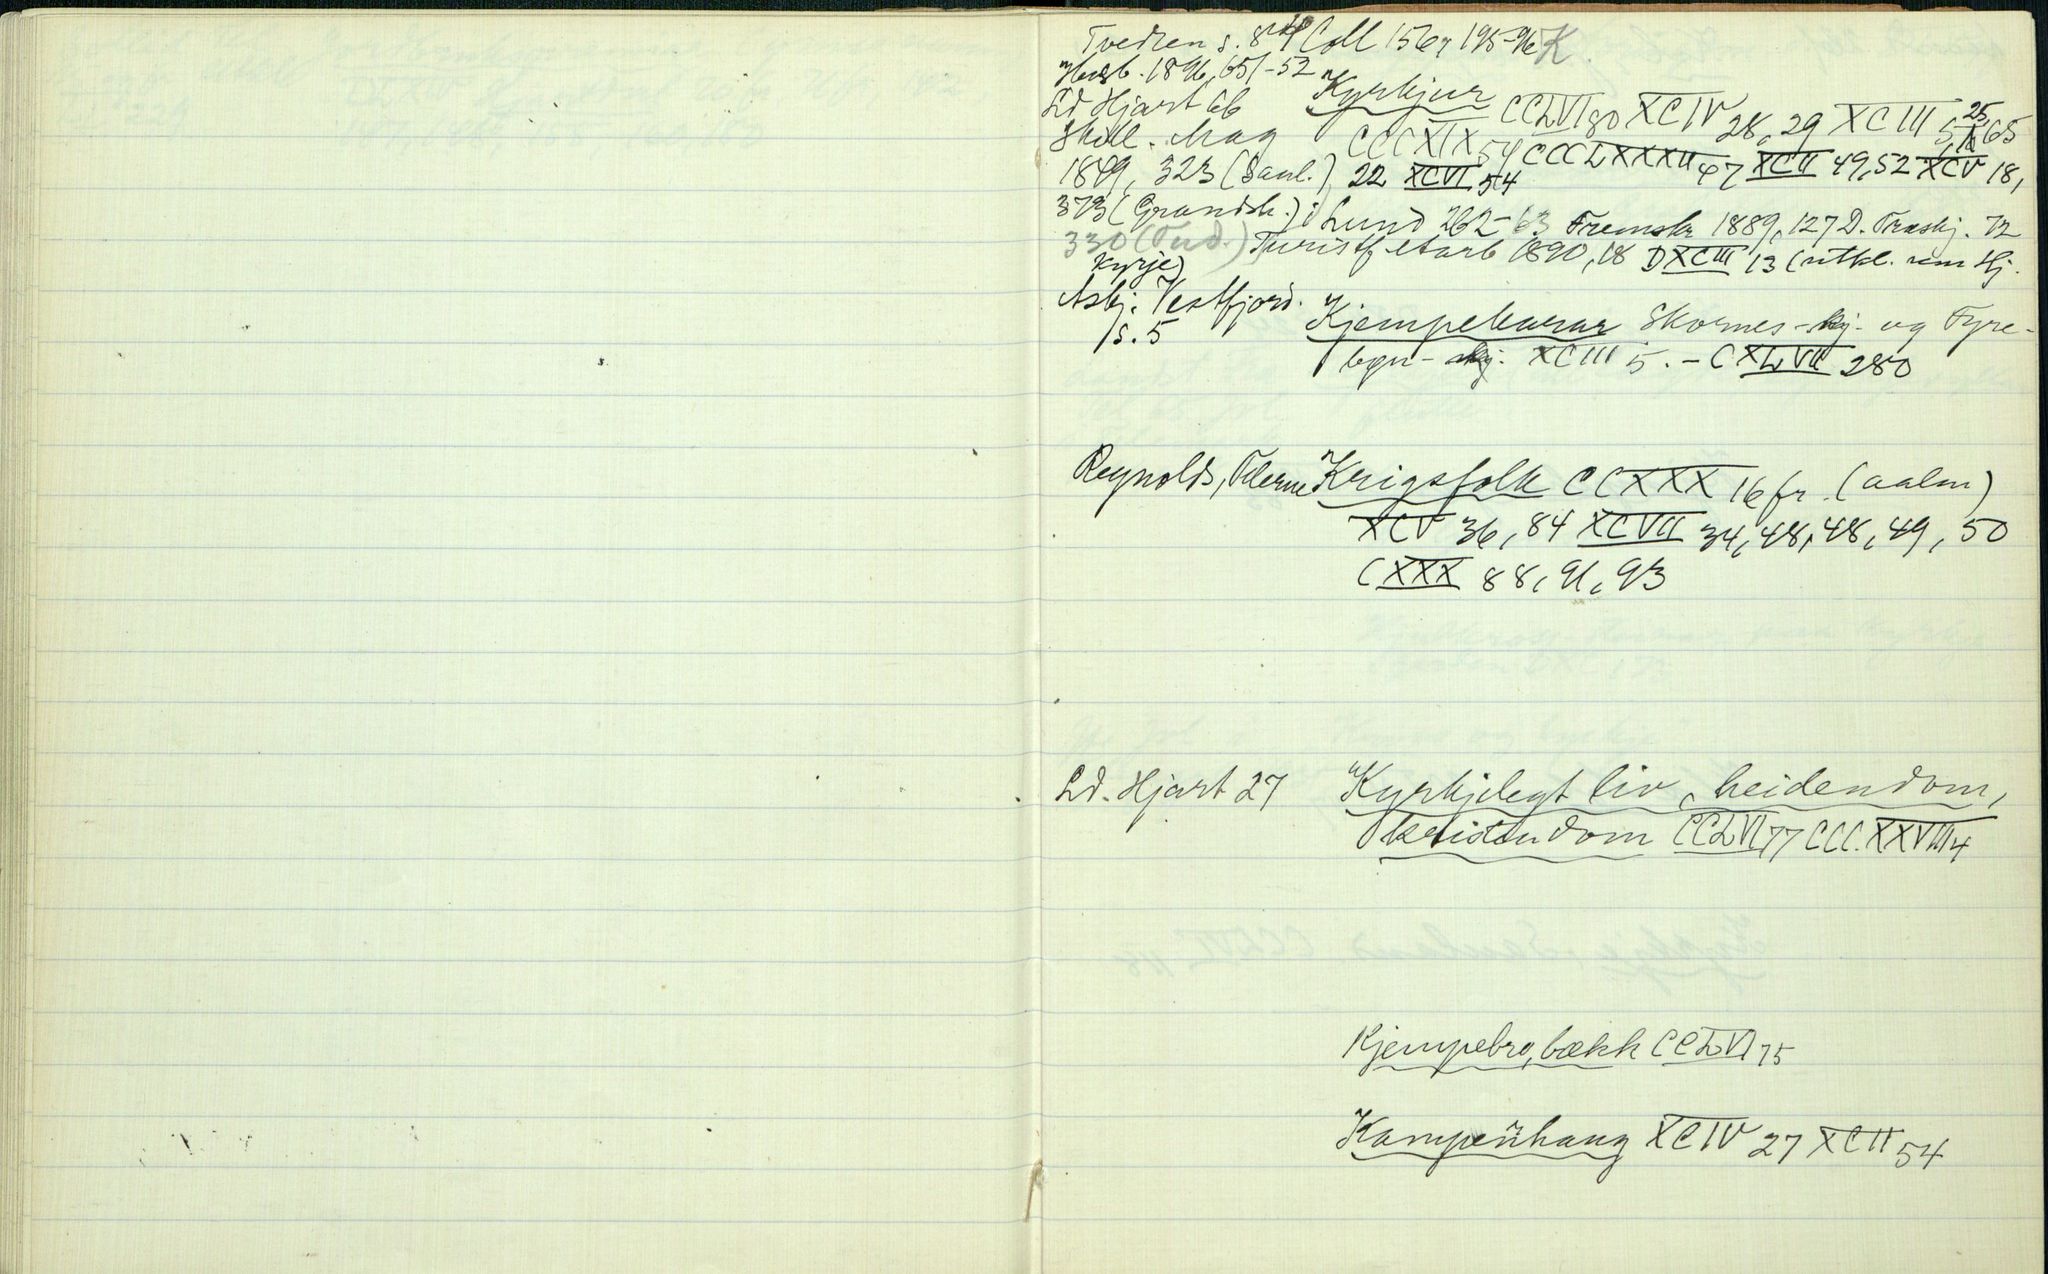 Tvedten s. 84 Coll 1567 195-96 K.
1896, 651-52
Ld Hjart 66 Kyrkjur CCLVI 80 XCIV 28, 29 XCIII 5, 25, 65
Skill. Mag CCCXIX 54 CCCLXXXII 47 XCII 49, 52 XCV 18,
1849, 323 (Saul.) 22 XCVI 54
373 (Gransh.) i Lund 262-63 Fremskr 1889, 127 D. Træskj. 72
330 (Tud.) Turistf etarb 1890, 18 DXCIII 13 (utkl. um Hj.
kyrje)
Asbj. Vestfjord.
s. 5
Kjempekarar Skornes-kj. og Fyre-
bøn-kj. XCIII 5. - CXLVII 280
Reynolds, Krigsfolk CCXXX 16 fr. (aalm)
XCV 36, 84 XCVII 34, 48, 48, 49, 50
CXXX 88, 91, 93
Ld. Hjart 27 Kyrkjelegt liv, heidendom,
kristendom CCLVI 77 CCCXXVIII 4
Kjempebro, bækk CCLVI 75
Kampenhaug XCIV 27 XCII 54